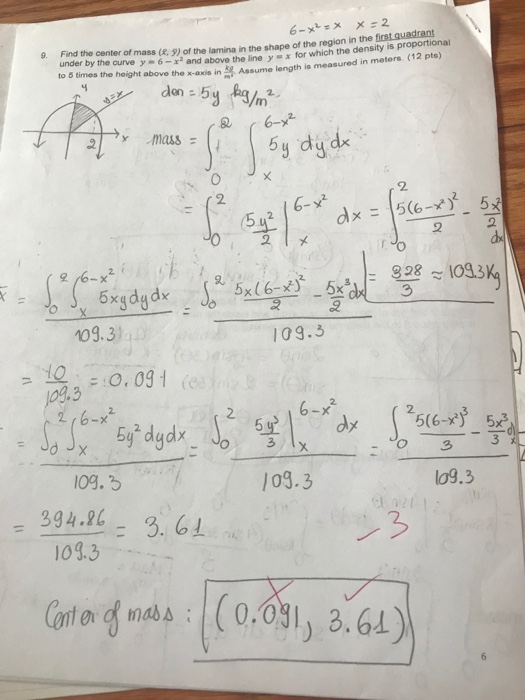 6-x² = x x = 2
9. Find the center of mass (x̄, ȳ) of the lamina in the shape of the region in the first quadrant
under by the curve y = 6 - x² and above the line y = x for which the density is proportional
to 5 times the height above the x-axis in kg/m². Assume length is measured in meters. (12 pts)
y
y=x
x
2
den = 5y kg/m²
mass = ∫₀² ∫ₓ^(6-x²) 5y dy dx
= ∫₀² 5y²/2 |ₓ^(6-x²) dx = ∫₀² 5(6-x²)²/2 - 5x²/2 dx
= 328/3 ≈ 109.3 Kg
= ∫₀² ∫ₓ^(6-x²) 5xy dy dx / 109.3 = ∫₀² 5x(6-x²)²/2 - 5x³/2 dx / 109.3
= 10/109.3 = 0.091
= ∫₀² ∫ₓ^(6-x²) 5y² dy dx / 109.3 = ∫₀² 5y³/3 |ₓ^(6-x²) dx / 109.3 = ∫₀² 5(6-x²)³/3 - 5x³/3 / 109.3
= 394.86/109.3 = 3.61
-3
Center of mass : (0.091, 3.61)
6